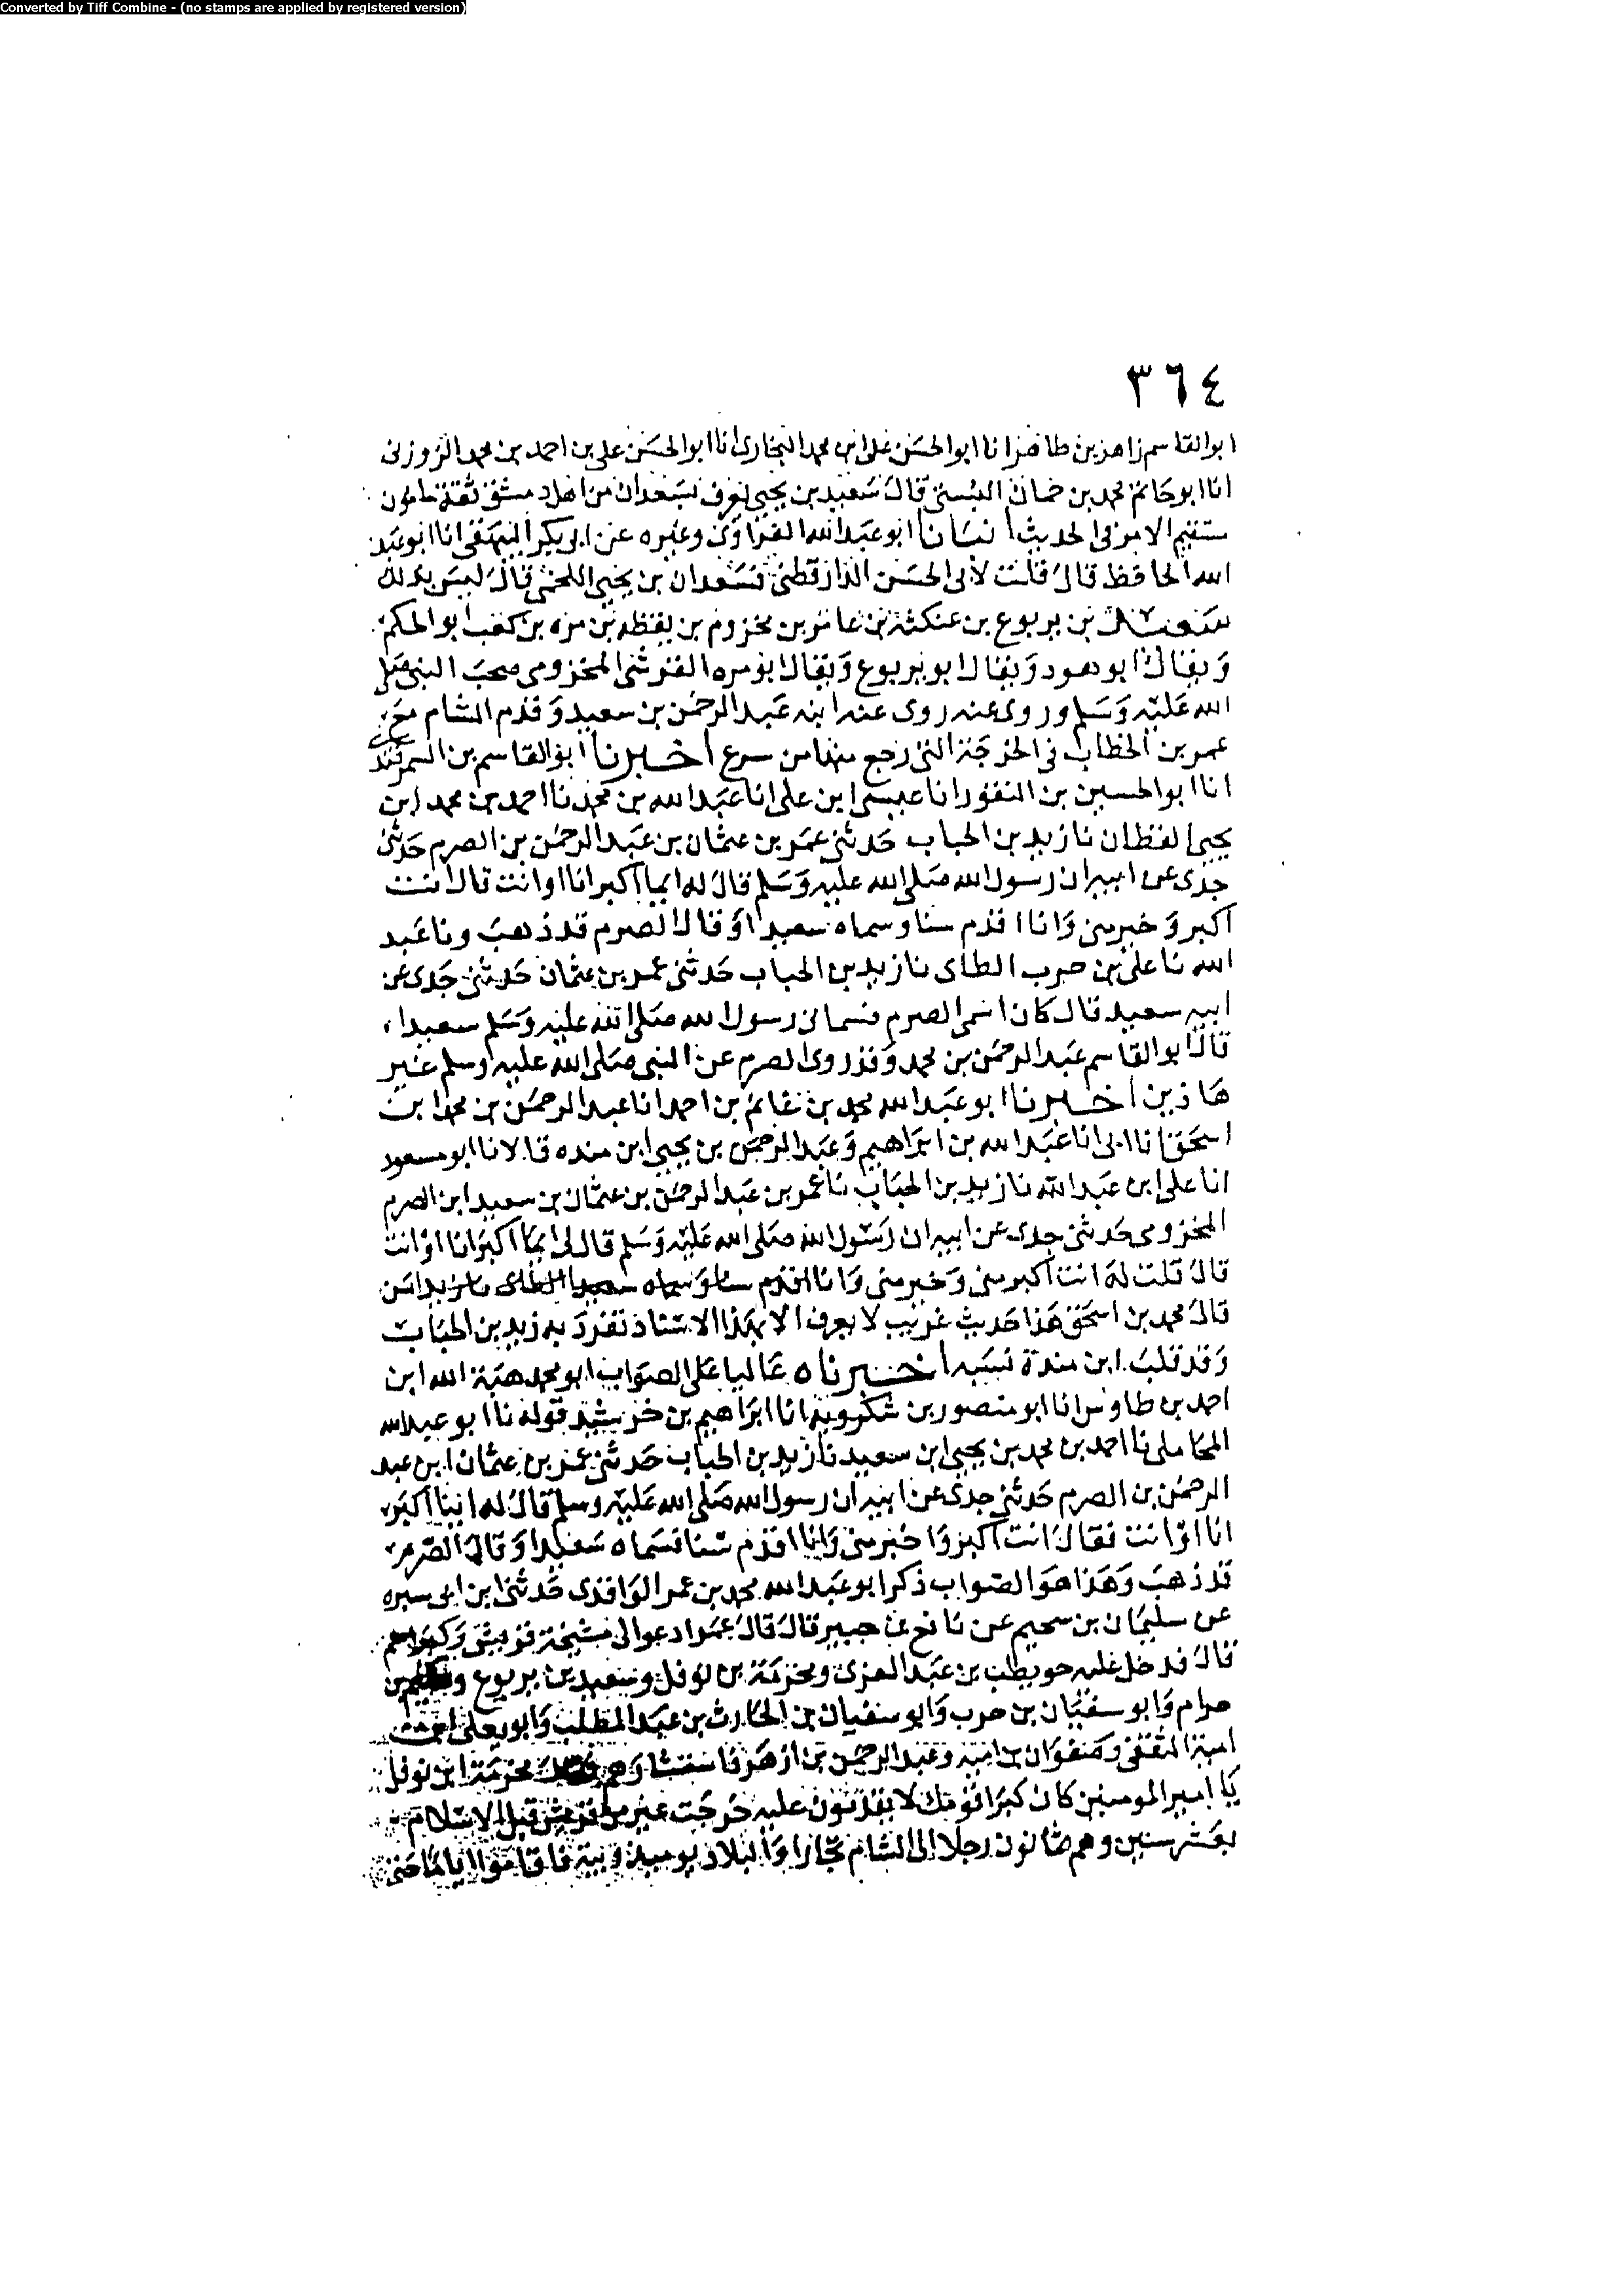 Converted by Tiff Combine - (no stamps are applied by registered version)
٣٦٤
ابو القاسم زاهر بن طاهر انا ابو الحسن على بن محمد البخارى انا ابو الحسن على بن احمد بن محمد الزوزنى
انا ابو حاتم محمد بن حبان البستى قال سعيد بن يحيى يعرف بسعدان من اهل دمشق ثقة مامون
مستقيم الامر فى الحديث انبانا ابو عبد الله الفراوى وغيره عن ابى بكر البيهقى انا ابو عبد
الله الحافظ قال قلت لابى الحسن الدارقطنى فسعدان بن يحيى اللخمى قال ليس بذلك
سعيد بن يربوع بن عنكثة بن عامر بن مخزوم بن يقظه بن مره بن كعب ابو الحكم
ويقال ابو هود ويقال ابو يربوع ويقال ابو مره القرشى المخزومى صحب النبى صلى
الله عليه وسلم وروى عنه روى عنه ابنه عبد الرحمن بن سعيد وقدم الشام مع
عمر بن الخطاب فى الخرجة التى رجع منها من سرغ اخبرنا ابو القاسم بن السمرقندى
انا ابو الحسين بن النقور انا عيسى ابن على انا عبد الله بن محمد نا احمد بن محمد ابن
يحيى القطان نا زيد بن الحباب حدثنى عمر بن عثمان بن عبد الرحمن بن الصرم حدثنى
جدى عن ابيه ان رسول الله صلى الله عليه وسلم قال له ايما اكبر انا او انت قال انت
اكبر وخير منى وانا اقدم سنا وسماه سعيدا وقال الصرم قد ذهب ونا عبد
الله نا على بن حرب الطاى نا زيد بن الحباب حدثنى عمر بن عثمان حدثنى جدى عن
ابيه سعيد قال كان اسمى الصرم فسمانى رسول الله صلى الله عليه وسلم سعيدا،
قال ابو القاسم عبد الرحمن بن محمد وقد روى الصرم عن النبى صلى الله عليه وسلم غير
هاذين اخبرنا ابو عبد الله محمد بن غانم بن احمد انا عبد الرحمن بن محمد ابن
اسحق انا ابى انا عبد الله بن ابراهيم وعبد الرحمن بن يحيى ابن منده قالا نا ابو مسعود
انا على ابن عبد الله نا زيد بن الحباب نا عمر بن عبد الرحمن بن عثمان بن سعيد ابن الصرم
المخزومى حدثنى جدى عن ابيه ان رسول الله صلى الله عليه وسلم قال لى ايما اكبر انا او انت
قال قلت له انت اكبر منى وخير منى وانا اقدم سنا وسماه سعيدا
قال محمد بن اسحق هذا حديث غريب لا يعرف الا بهذا الاسناد تفرد به زيد بن الحباب
وقد قلب ابن مندة نسبه اخبرناه عاليا على الصواب ابو محمد هبة الله ابن
احمد بن طاوس انا ابو منصور بن شكرويه انا ابراهيم بن خرشيد قوله نا ابو عبد الله
المحاملى نا احمد بن محمد بن يحيى ابن سعيد نا زيد بن الحباب حدثنى عمر بن عثمان ابن عبد
الرحمن بن الصرم حدثنى جدى عن ابيه ان رسول الله صلى الله عليه وسلم قال له اينا اكبر
انا او انت فقال انت اكبر واخير منى وانا اقدم سنا فسماه سعيدا وقال الصرم
قد ذهب وهذا هو الصواب ذكر ابو عبد الله محمد بن عمر الواقدى حدثنى ابن ابى سبره
عن سليمان بن سحيم عن نافع بن جبير قال قال عمر ادعوا لى مشيخة قريش وكبراهم
قال فدخل عليه حويطب بن عبد العزى ومخرمة بن نوفل وسعيد بن يربوع وحكيم بن
حزام وابو سفيان بن حرب وابو سفيان بن الحارث بن عبد المطلب وابو يعلى
امية الثقفى وصفوان بن امية وعبد الرحمن بن ازهر فاستشارهم فقال مخرمة ابن نوفل
يا امير المومنين كان كبرا قومك لا يقدمون عليه خرجت عير من قريش قبل الاسلام
بعشر سنين وهم ثمانون رجلا الى الشام تجارا والبلاد يوميذ وبية فاقاموا اياما